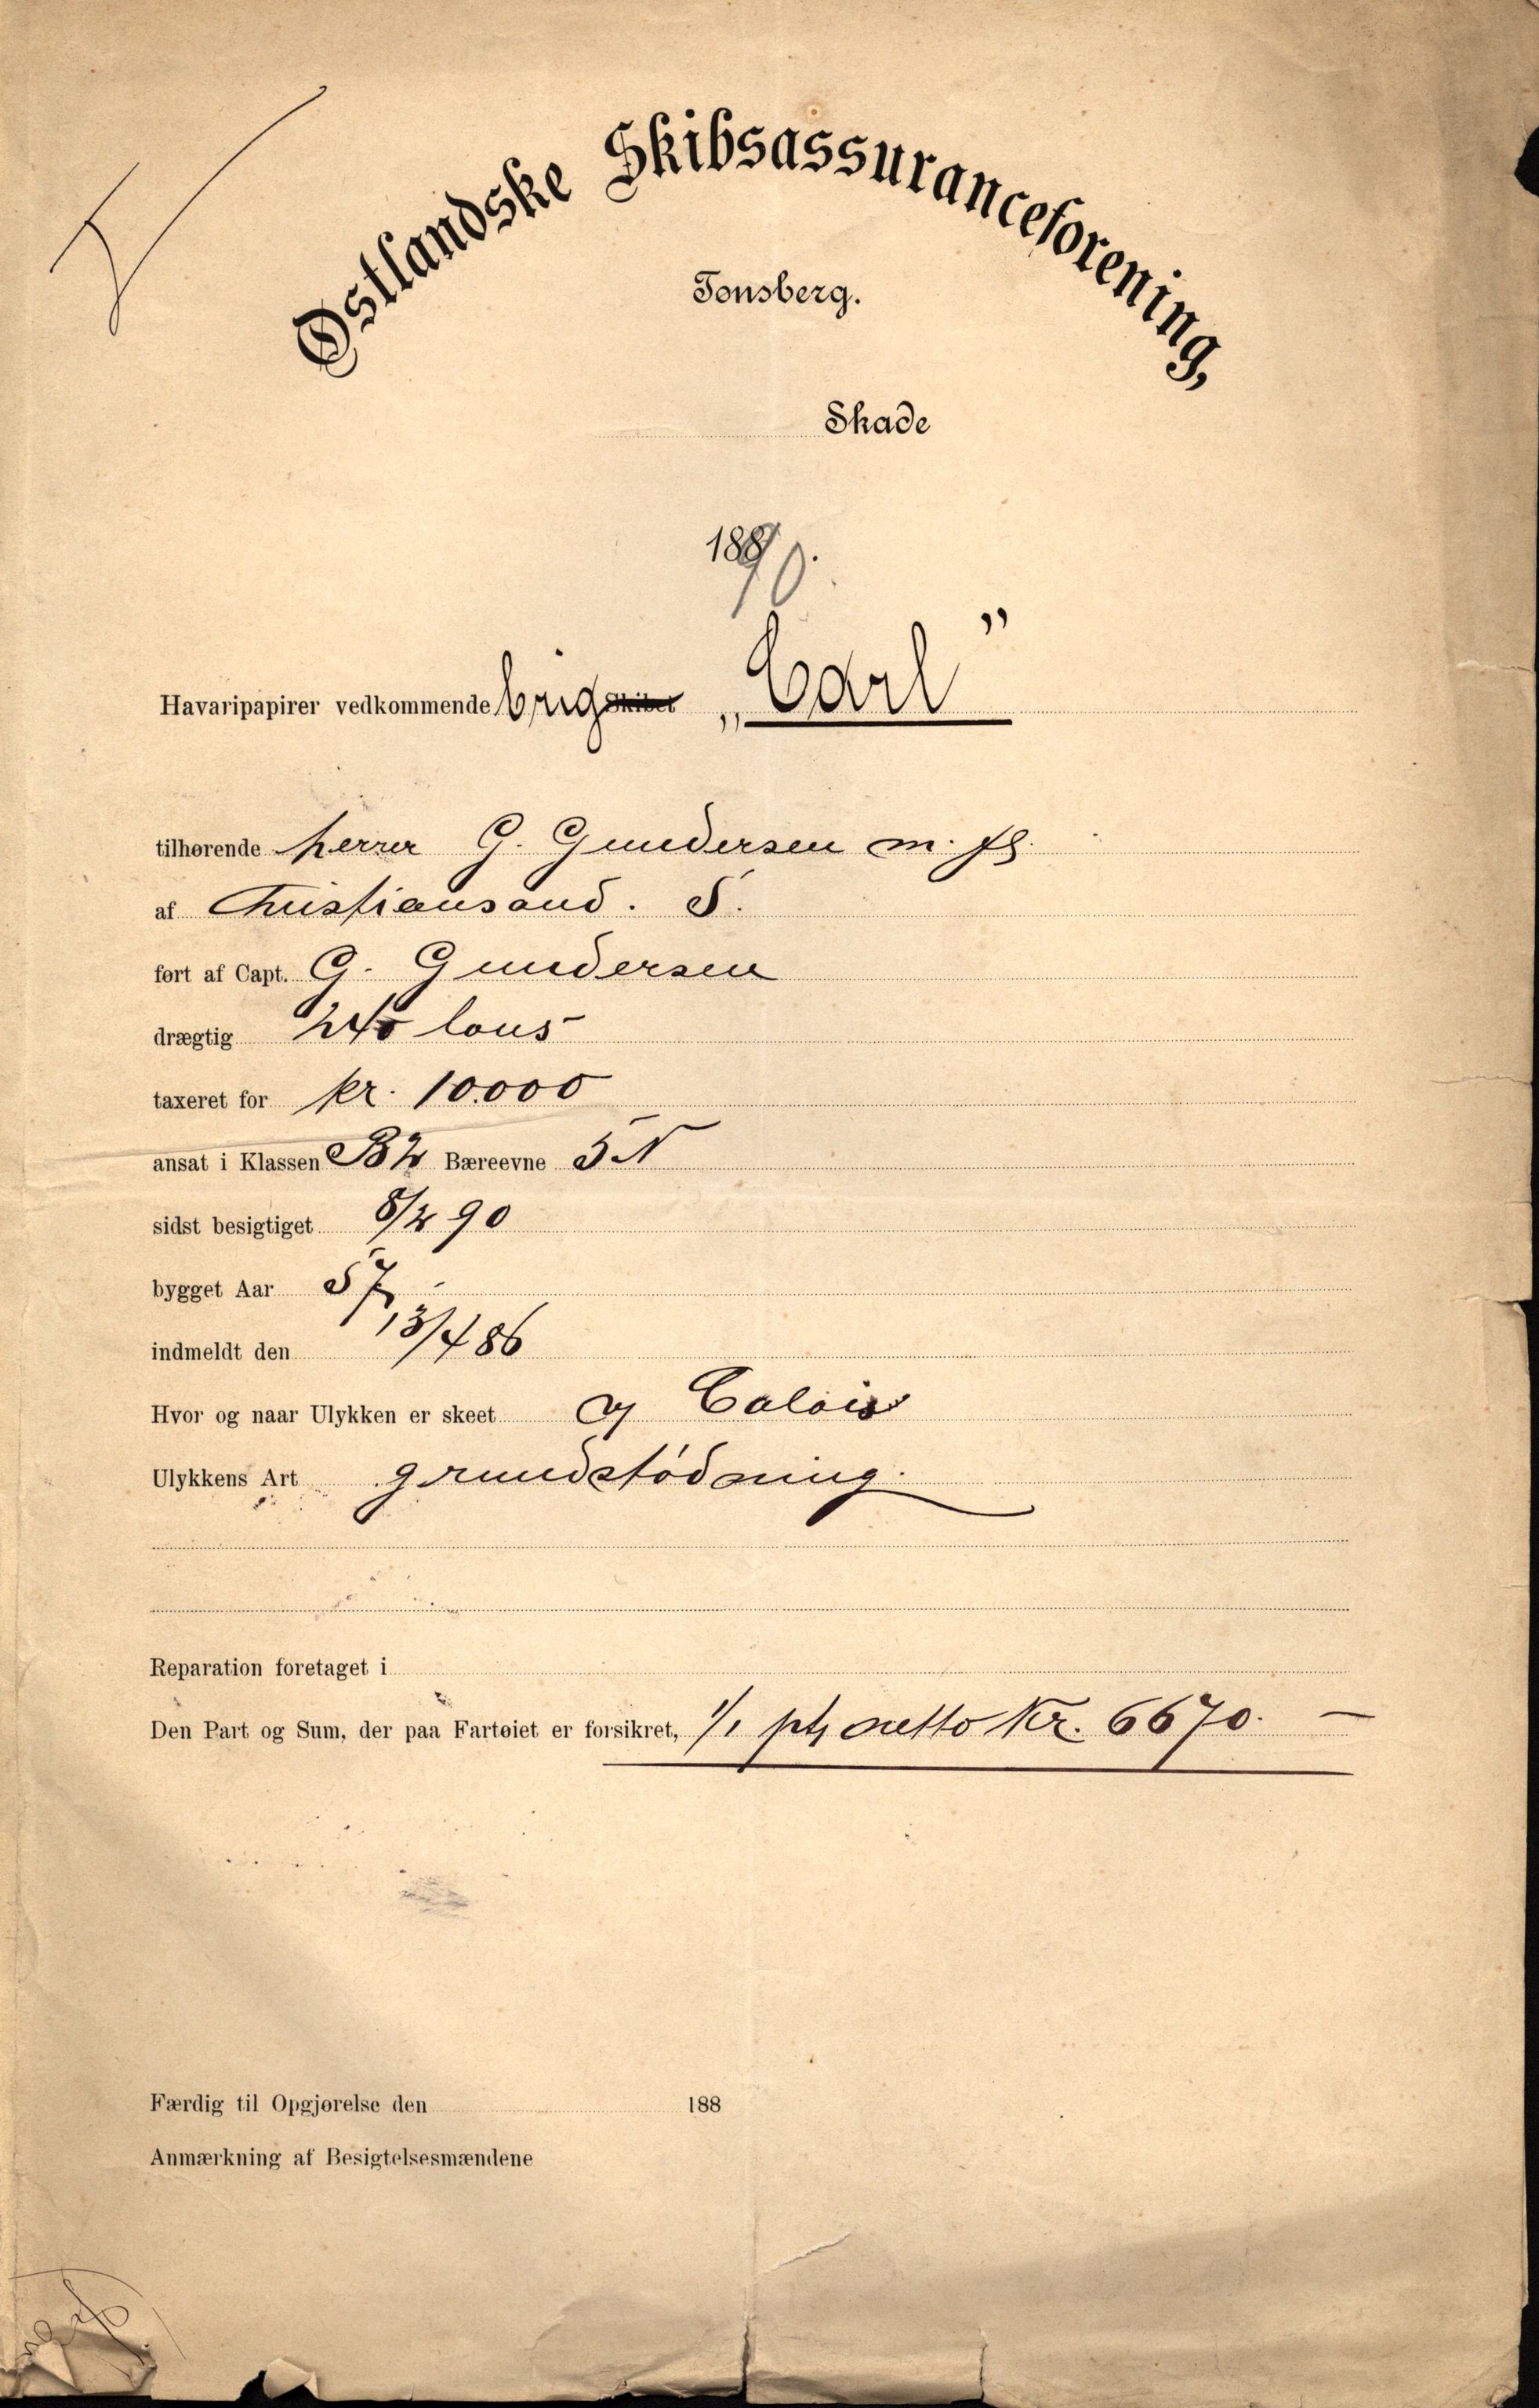 Østlandske Skibsassuranceforening,
Tønsberg.
Skade
1890.
Havaripapirer vedkommende brig Skibet „Carl”
tilhørende herrer G. Gundersen m. fl.
af Christiansand. S.
ført af Capt. G. Gundersen
drægtig 240 tons
taxeret for kr. 10.000
ansat i Klassen B2 Bæreevne 5 N
sidst besigtiget 8/2 90
bygget Aar 57
indmeldt den 13/4 86
Hvor og naar Ulykken er skeet Calais
Ulykkens Art grundstødning.
Reparation foretaget i
Den Part og Sum, der paa Fartøiet er forsikret, 1/1 pt, netto Kr. 6670. —
Færdig til Opgjørelse den 188
Anmærkning af Besigtelsesmændene